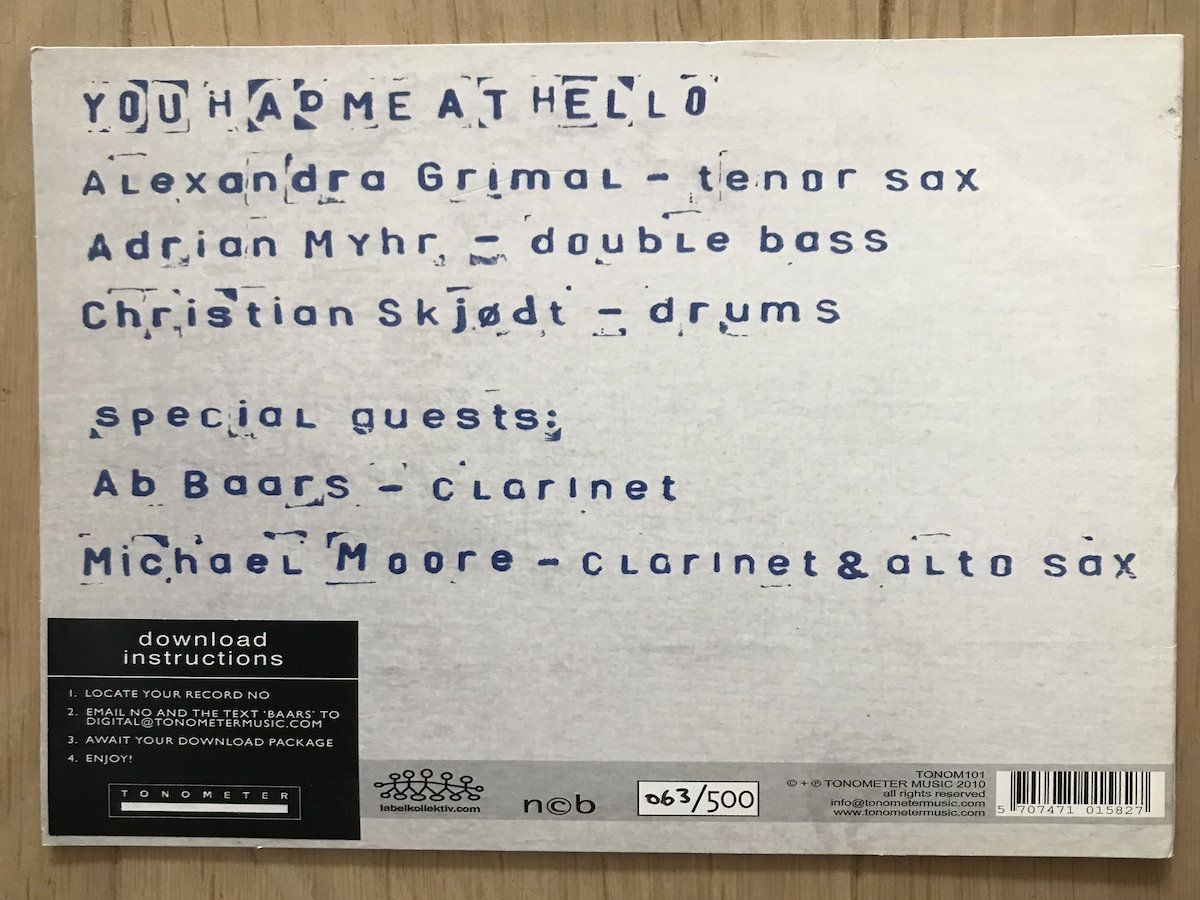 YOU HAD ME AT HELLO
Alexandra Grimal - tenor sax
Adrian Myhr - double bass
Christian Skjødt - drums
special guests:
Ab Baars - clarinet
Michael Moore - clarinet & alto sax
download
instructions
1. LOCATE YOUR RECORD NO
2. EMAIL NO AND THE TEXT 'BAARS' TO
DIGITAL@TONOMETERMUSIC.COM
3. AWAIT YOUR DOWNLOAD PACKAGE
4. ENJOY!
TONOMETER
labelkollektiv.com
n©b
063/500
TONOM101
© + ℗ TONOMETER MUSIC 2010
all rights reserved
info@tonometermusic.com
www.tonometermusic.com
5 707471 015827